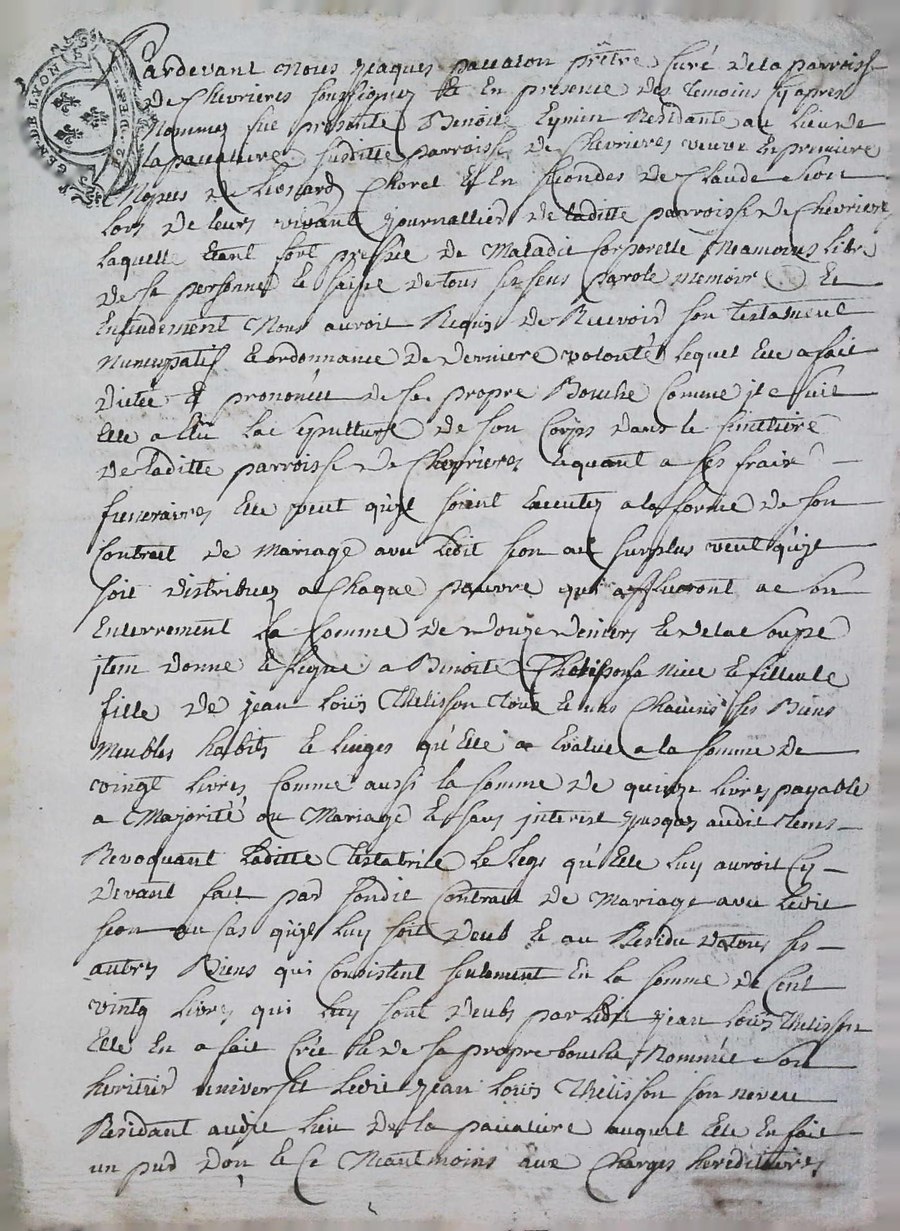 GEN. DE LYON
Pardevant Nous Jaques pacalon prêtre Curé de la parroisse
de Chevrieres soussigné et En presence des temoins cy apres
Nommez fut presente Benoite Eymin Residante au lieu de
la pacaliere susditte parroisse de Chevrieres veuve En premiere
Nopces de Leonard Chorel et En secondes de Claude scion
lors de leurs vivant journallier de laditte parroisse de Chevrieres
laquelle etant fort pressée de Maladie Corporelle Neamoins libre
de sa personne et saine de tous ses sens parole memoire et
Entendement Nous auroit Requis de Recevoir son testament
Nuncupatif et ordonnance de derniere volonté lequel Elle a fait
dicté et prononcée de sa propre Bouche Comme il s suit
Elle a Elu la sepulture de son Corps dans le simetiere
de laditte parroisse de Chevrieres et quant a ses frais
funeraires Elle veut qu'ils soient Executez a la forme de son
Contrat de Mariage avec ledit scion au surplus veut qu'il
soit distribuez a Chaque pauvre qui afflueront a son
Enterrement la somme de douze deniers et de la soupe
jtem donne et legue a Benoite Thelisson sa niece et filleule
fille de jean Loüis Thelisson tous et uns Chacuns ses Biens
Meubles habits et linges qu'Elle a Evalué a la somme de
vingt livres Comme aussi la somme de quinze livres payable
a Majorité ou Mariage et sans interest jusques audit tems
Revoquant laditte testatrice le legs qu'Elle luy auroit Cy
devant fait par sondit Contrat de Mariage avec ledit
scion au Cas qu'il luy soit deub et au Residu de tous ses
autres Biens qui Consistent seulement En la somme de Cent
vingt livres qui luy sont deubs par ledit jean Loüis Thelisson
Elle En a fait Crée et de sa propre bouche Nommée son
heritier universel ledit jean Loüis Thelisson son neveu
Residant audit lieu de la pacaliere auquel Elle En fait
un pur don et Ce Neantmoins aux Charges hereditaires